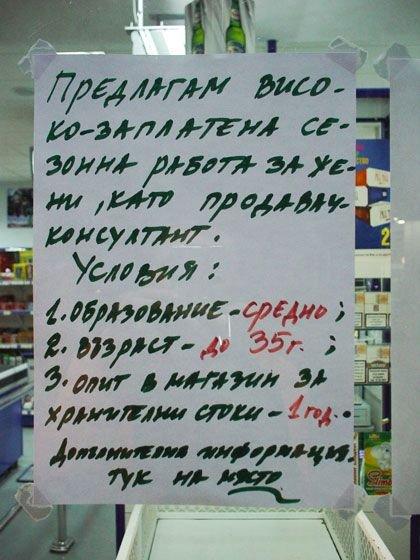 ПРЕДЛАГАМ ВИСО-
КО-ЗАПЛАТЕНА СЕ-
ЗОННА РАБОТА ЗА ЖЕ-
НИ, КАТО ПРОДАВАЧ-
КОНСУЛТАНТ.
УСЛОВИЯ:
1. ОБРАЗОВАНИЕ - СРЕДНО;
2. ВЪЗРАСТ - ДО 35 г.;
3. ОПИТ В МАГАЗИН ЗА
ХРАНИТЕЛНИ СТОКИ - 1 год.
Допълнителна информация-
ТУК НА МЯСТО